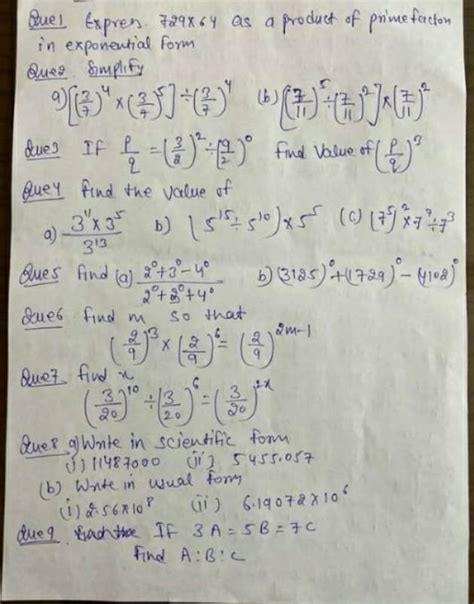 Que1 Express 729×64 as a product of prime factors
in exponential form
Que2 Simplify
a) [(3/7)^4 × (3/7)^5] ÷ (3/7)^4 (b) [(7/11)^5 ÷ (7/11)^2] × (7/11)^2
Que3 If P/q = (3/2)^2 ÷ (9/2)^0 find value of (P/q)^3
Que4 find the value of
a) 3^11 × 3^5 / 3^13 b) (5^15 ÷ 5^10) × 5^5 (c) (7^5)^2 × 7^7 ÷ 7^3
Que5 find (a) 2^0+3^0-4^0 / 2^0+3^0+4^0 b) (3125)^0+(1729)^0-(4102)^0
Que6 find m so that
(2/9)^3 × (2/9)^6 = (2/9)^2m-1
Que7 find x
(3/20)^10 ÷ (3/20)^6 = (3/20)^2x
Que8 a) Write in scientific form
(i) 11487000 (ii) 5455.057
(b) Write in usual form
(i) 2.56×10^8 (ii) 6.19072×10^6
Que9 If 3A = 5B = 7C
find A:B:C